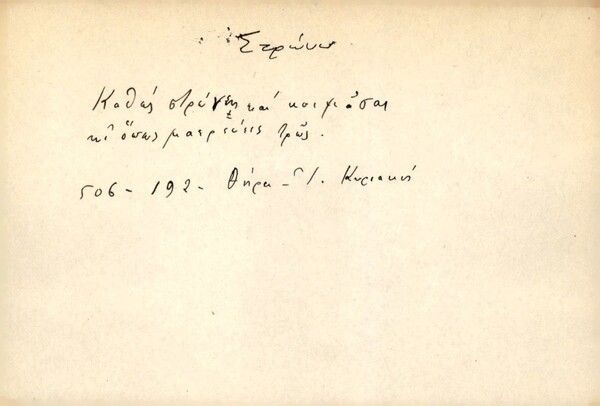 Στρώνω
Καθώς στρώνεις και κοιμᾶσαι
κι' ὅπως μαερεύεις τρῶς.
506 - 192 - Θήρα - Ι. Κυριακού